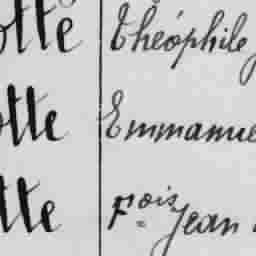 otte Théophile
otte Emmanue
tte F.ois Jean